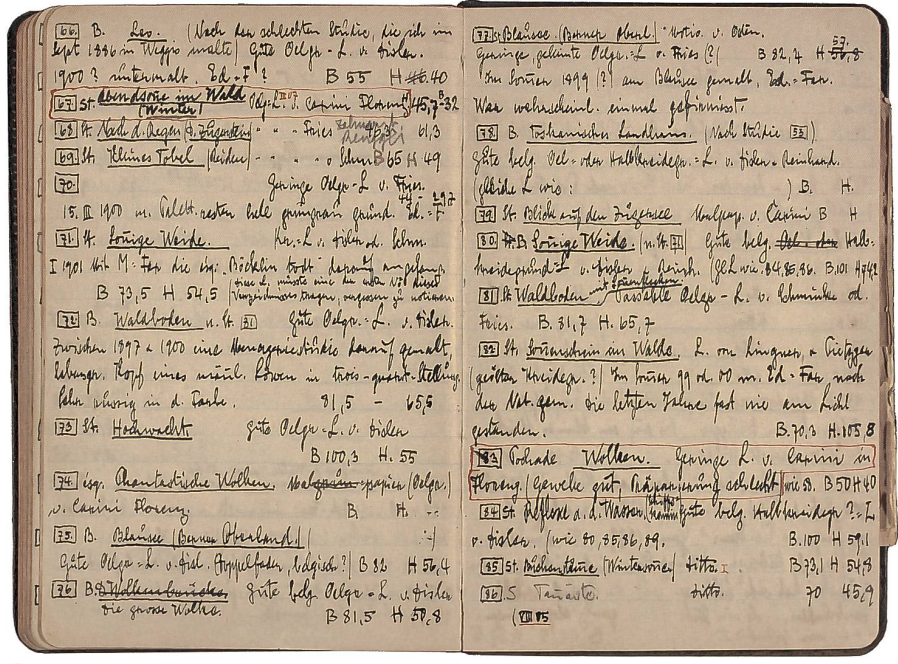 66. B. Leo. (Nach der schlechten Studie, die ich im
Sept 1886 in Weggis malte) Gute Oelgr.-L. v. Disler.
1900? untermalt. Ed.=F? B 55 H 46.40
67. St. Abendsonne im Wald Oelgr.=L. v. Carini Florenz 45,7 32
(Winter)
68. St. Nach d. Regen " " Fries 61,3
69. St. Kleines Tobel (Reiden) " " Schm. B 65 H 49
70. Geringe Oelgr=L v. Fries.
15. III 1900 m. Palett.resten grüngrau grund. Ed.=F
71. St. Sonige Weide. Kr.=L v. Disler od. Schm.
I 1901 mit M=Far die sog. "Böcklin todt" darauf angefangen
diese L. musste eine No dieses
B 73,5 H 54,5 Verzeichnisses tragen, vergessen zu notieren.
72. B. Waldboden n. St. 31 Gute Oelgr.=L. v. Disler.
Zwischen 1897 & 1900 eine Menageriestudie darauf gemalt,
Lebensgr. Kopf eines männl. Löwen in trois-quart-Stellung.
Sehr in d. Farbe. 81,5 - 65,5
73 St. Hochwacht. gute Oelgr.-L. v. Disler
B 100,3 H. 55
74. sog. Phantastische Wolken. papier (Oelgr.)
v. Carini Florenz. B. H. --
75. B. Blausee (Berner Oberland.)
Gute Oelgr=L v. Disl. (Doppelfaden, belgisch?) B 82 H 56,4
76 B. Wolkenbrücke Gute belg. Oelgr=L v. Disler
Die grosse Wolke. B 81,5 H 58,8
77. St. Blausee. (Berner Oberl.) Motiv v. oben.
57.
Geringe geleimte Oelgr.=L v. Fries (?) B 82,4 H 56,8
Im Sommer 1899 (?) am Blausee gemalt, Ed.=Far.
War wahrscheinl. einmal gefirnisst.
78. B. Toskanisches Landhaus. (Nach Studie 53.)
Gute belg. Oel= oder Halbkreidegr.=L v. Disler & Reinhard.
(gleiche L wie: ) B. H.
79. St. Blick auf den Zugersee Malpap. v. Carini B H
80. B. Sonige Weide. (n. St. 71) Gute belg. Oel- oder Halb=
kreidegrund=L v. Disler & Reinh. (gl. L wie 84,85,86. B. 101 H 74,2
81. St Waldboden mit Sonnenflecken. Oelgr - L. v. Schmincke od.
Fries. B. 81,7 H. 65,7
82. St. Sonnenschein im Walde. L. von
(geölter Kreidegr.?) Im Sommer 99 od. 00 m. Ed=Far nach
der Nat. gem. Die letzten Jahre fast nie am Licht
gestanden. B. 70,3 H. 105,8
83. Pochade Wolken. Geringe L. v. Carini in
Florenz. (Gewebe gut, Präparierung schlecht) wie 88. B 50 H 40
84. St. Reflexe a. d. Wasser. gute belg. Halbkreidegr ? = L
v. Disler. (wie 80, 85, 86, 89. B. 100 H 59.1
85. St. Büchenstäme (Wintersonne) ditto. I B 73,1 H 54,8
86. S ditto. 70 45,9
(VIII 05